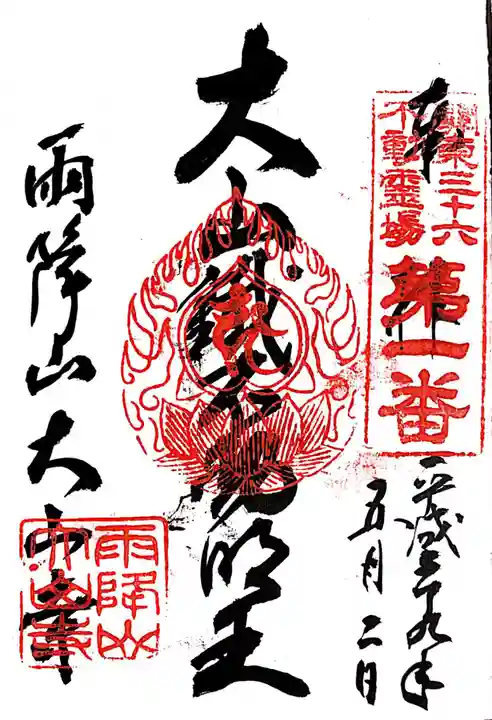 奉拝
関東三十六
不動霊場
第一番
平成二十九年
五月二日
大山鐵不動明王
雨降山大山寺
雨降山
大山寺